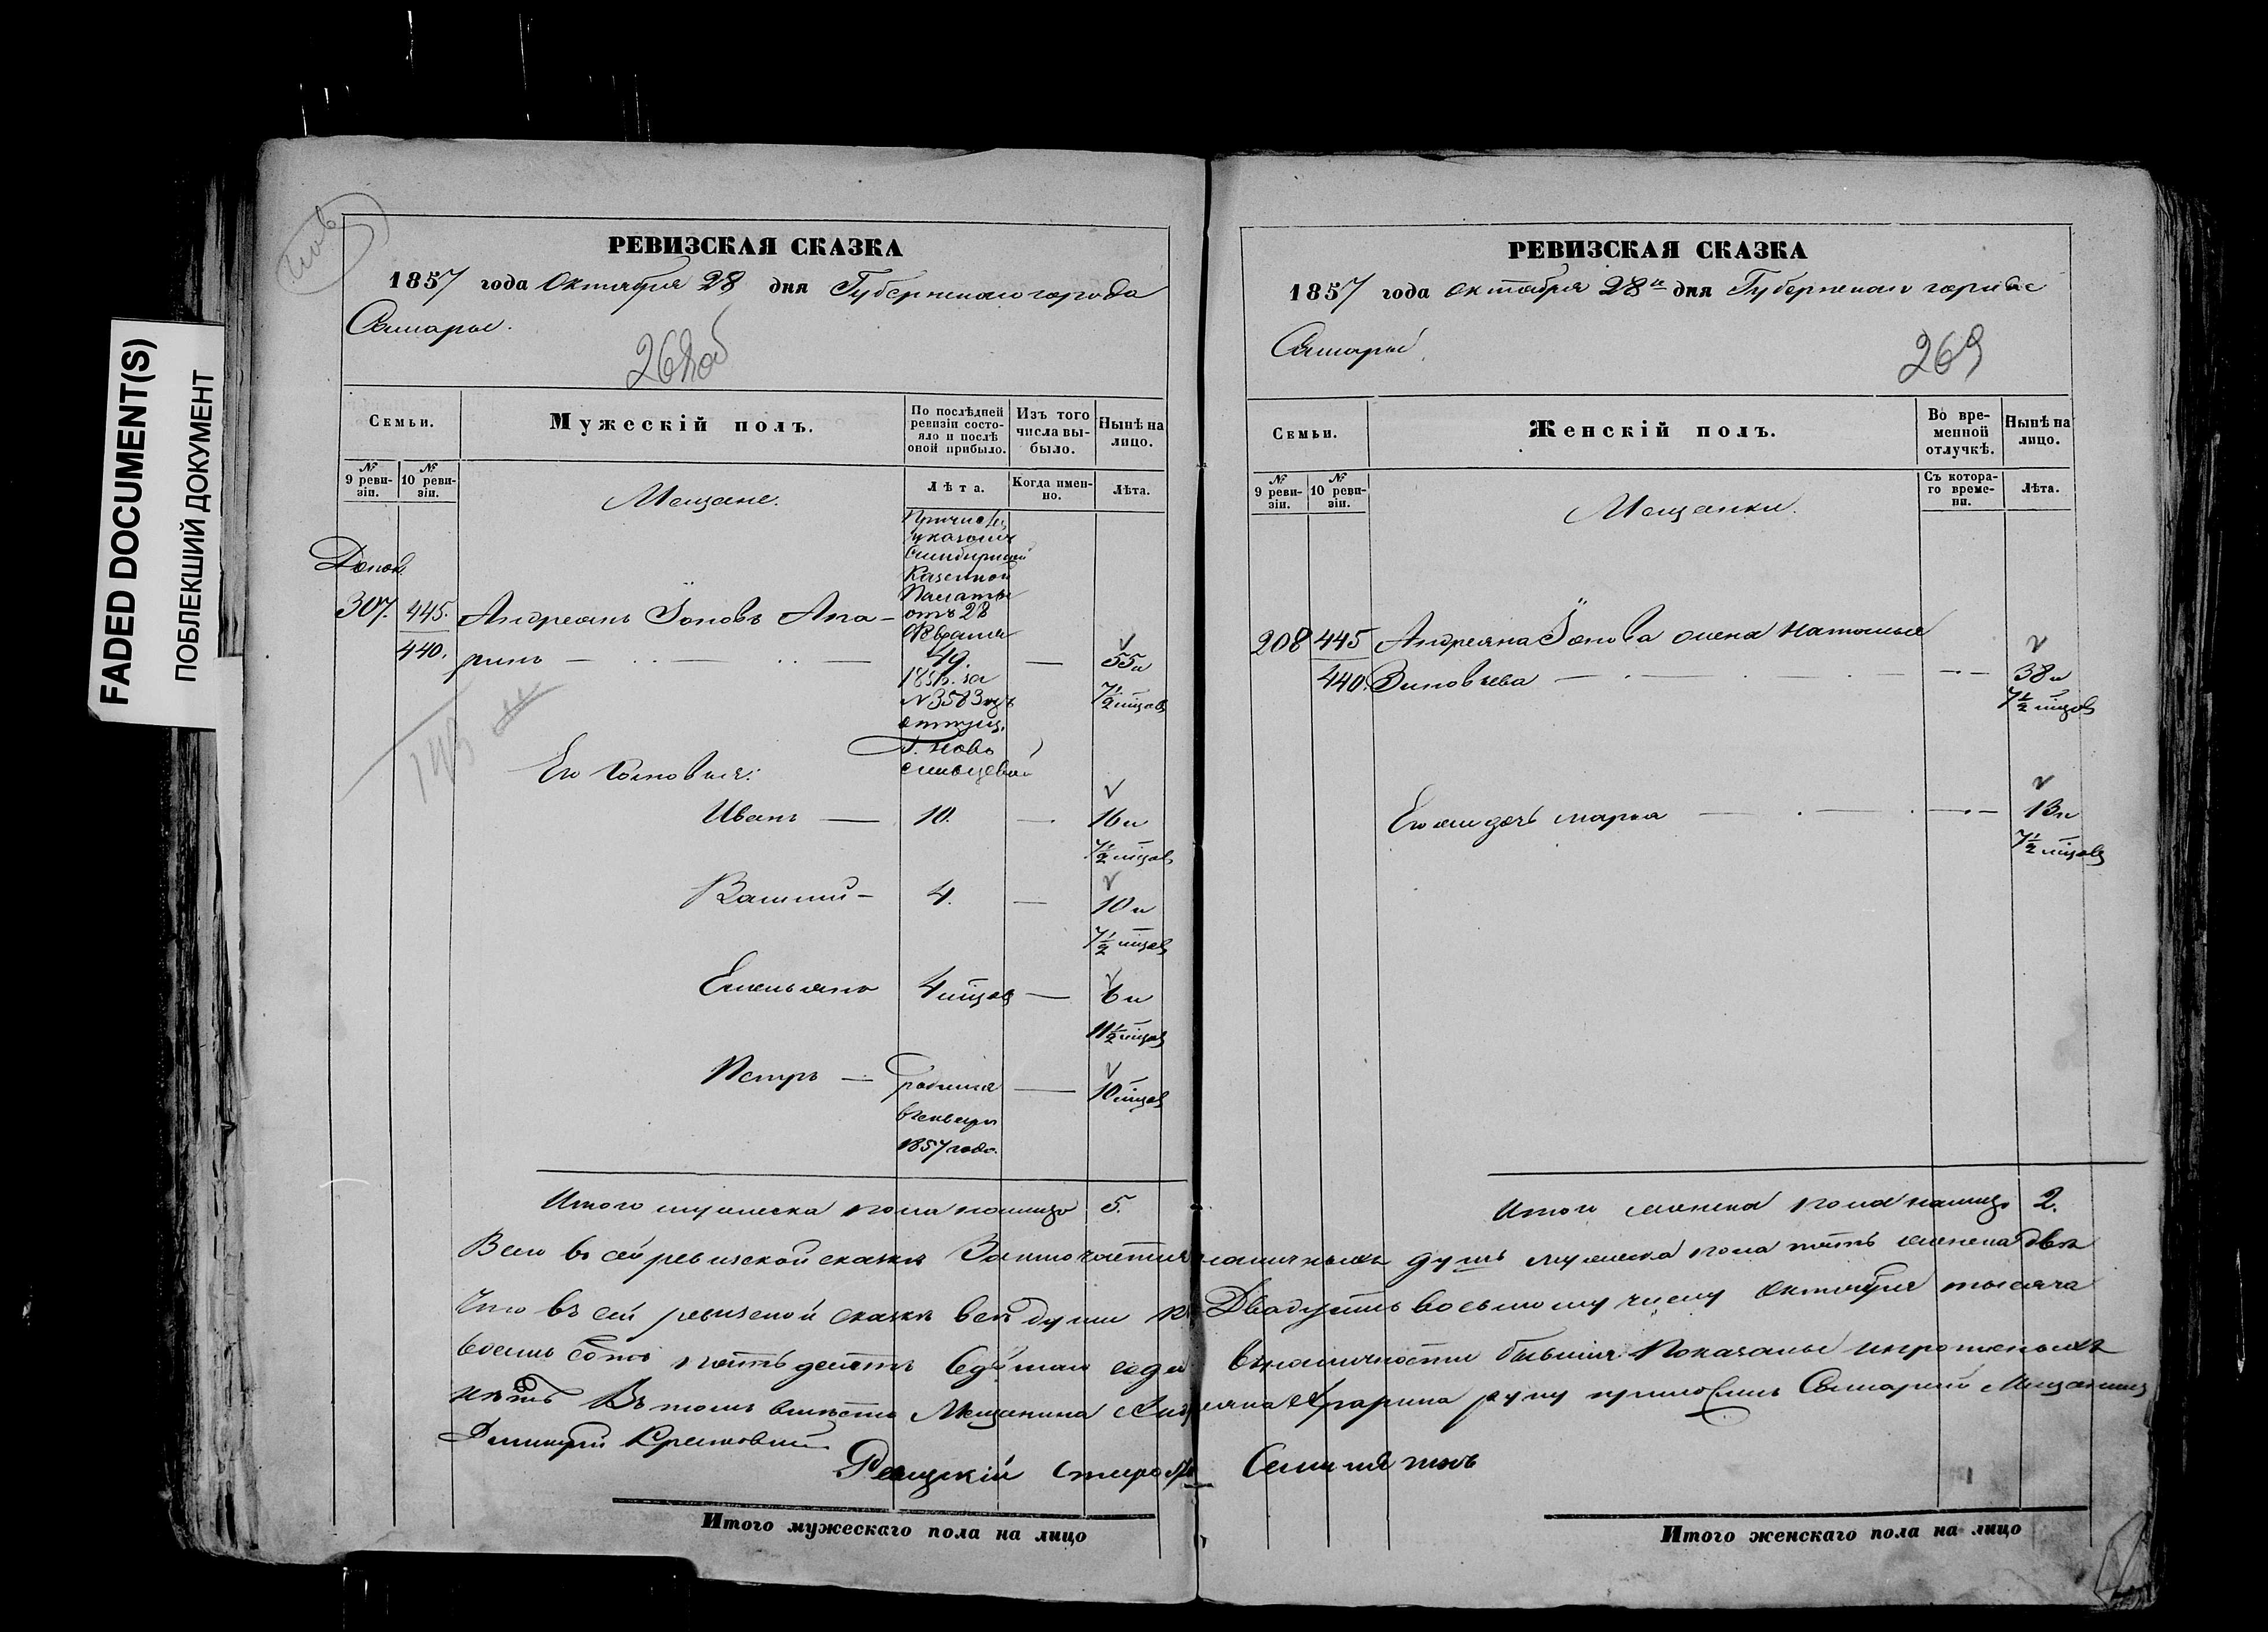 FADED DOCUMENT(S)
ПОБЛЕКШИЙ ДОКУМЕНТ
РЕВИЗСКАЯ СКАЗКА
1857 года Октября 28 дня Губернскаго города
Самары.
268об
Семьи.
Мужескій полъ.
По послѣдней ревизіи состояло и послѣ оной прибыло.
Изъ того числа выбыло.
Нынѣ на лицо.
№ 9 ревизіи.
№ 10 ревизіи.
Мещане.
Лѣта.
Когда именно.
Лѣта.
Причисл
указомъ
Симбирской
Казенной
Палаты
отъ 28
Февраля
307. 445. Андреянъ Іоновъ Апа-
440. ринъ — 49. — 55 и
7½ мцов
№ 3583 изъ
Его Сыновья:
Иванъ — 10. — 16 и
7½ мцов
Василий — 4. — 10 и
7½ мцов
Емельянъ 4 мцов — 6 и
11½ мцов
Петръ — родился — 10 мцов
в генваре
1857 года.
Итого мужеска пола налицо 5.
РЕВИЗСКАЯ СКАЗКА
1857 года октября 28 дня Губернскаго города
Самары
269
Семьи.
Женскій полъ.
Во временной отлучкѣ.
Нынѣ на лицо.
№ 9 ревизіи.
№ 10 ревизіи.
Мещанки.
Съ котораго времени.
Лѣта.
208 445 Андреяна Іонова жена Наталья
440. Зиновьева — 38 и
7½ мцов
Его же дочь марья — 13 и
7½ мцов
Итого женска пола налицо 2.
Всего въ сей ревизской сказке Заключается наличныхъ душъ мужеска пола пять женска две
Что въ сей ревизской сказкѣ всѣ души къ Двадцать восьмому числу Октября тысяча
восемь сотъ пятьдесятъ седьмаго года въ наличности бывшия Показаны и пропущеныхъ
нѣтъ Въ томъ вместо Мещанина Андреяна Апарина руку приложилъ Самарский Мещанинъ
Димитрий
староста
Итого мужескаго пола на лицо
Итого женскаго пола на лицо